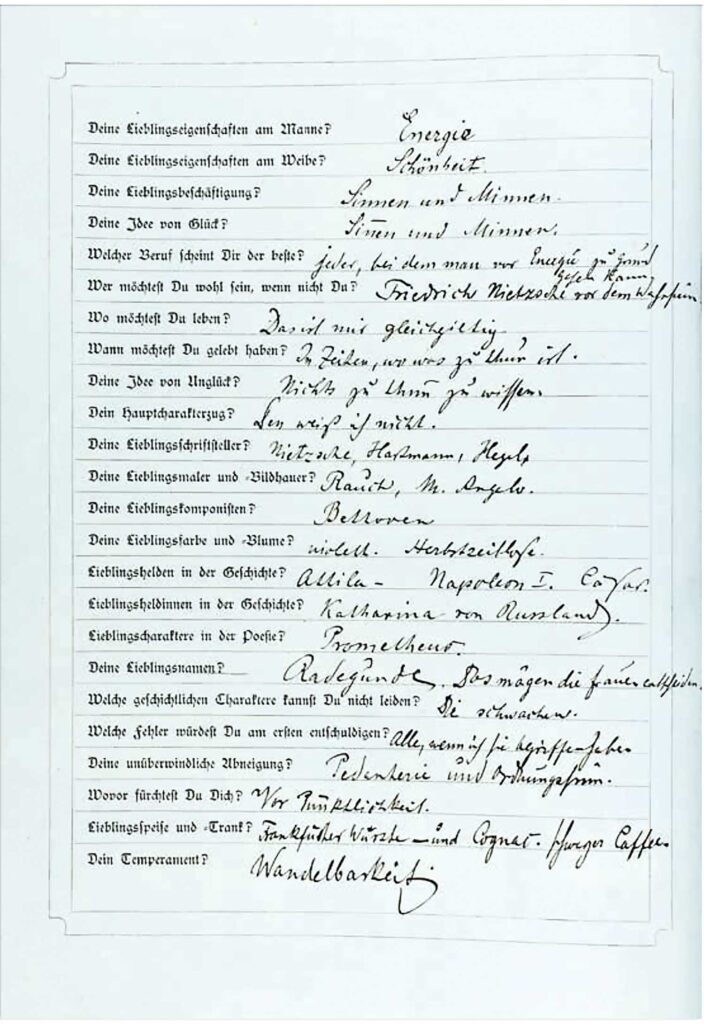 Deine Lieblingseigenschaften am Manne? Energie
Deine Lieblingseigenschaften am Weibe? Schönheit.
Deine Lieblingsbeschäftigung? Sinnen und Minnen.
Deine Idee von Glück? Sinnen und Minnen.
Welcher Beruf scheint Dir der beste? jeder, bei dem man vor Energie zu Grund
gehen kann
Wer möchtest Du wohl sein, wenn nicht Du? Friedrich Nietzsche vor dem Wahnsinn
Wo möchtest Du leben? Das ist mir gleichgiltig
Wann möchtest Du gelebt haben? In Zeiten, wo was zu thun ist.
Deine Idee von Unglück? Nichts zu thun zu wissen.
Dein Hauptcharakterzug? Den weiß ich nicht.
Deine Lieblingsschriftsteller? Nietzsche, Hartmann, Hegel
Deine Lieblingsmaler und -Bildhauer? Rauch, M. Angelo.
Deine Lieblingskomponisten? Bethoven
Deine Lieblingsfarbe und -Blume? violett. Herbstzeitlose.
Lieblingshelden in der Geschichte? Attila – Napoleon I. Cäsar.
Lieblingsheldinnen in der Geschichte? Katharina von Russland.
Lieblingscharaktere in der Poesie? Prometheus.
Deine Lieblingsnamen? Radegunde. Das mögen die Frauen entscheiden.
Welche geschichtlichen Charaktere kannst Du nicht leiden? Die schwachen.
Welche Fehler würdest Du am ersten entschuldigen? Alle, wenn ich sie begriffen habe.
Deine unüberwindliche Abneigung? Pedanterie und Ordnungssinn.
Wovor fürchtest Du Dich? Vor Pünktlichkeit.
Lieblingsspeise und -Trank? Frankfurter Würste – und Cognac. schwarzer Caffee.
Dein Temperament? Wandelbarkeit